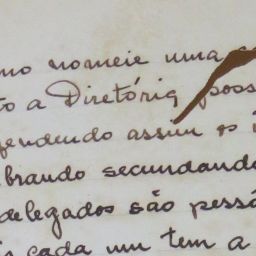 mo nomeie uma
to a Diretória poss
fendendo assim os i
brando secundando
delegados são pessô
is cada um tem a